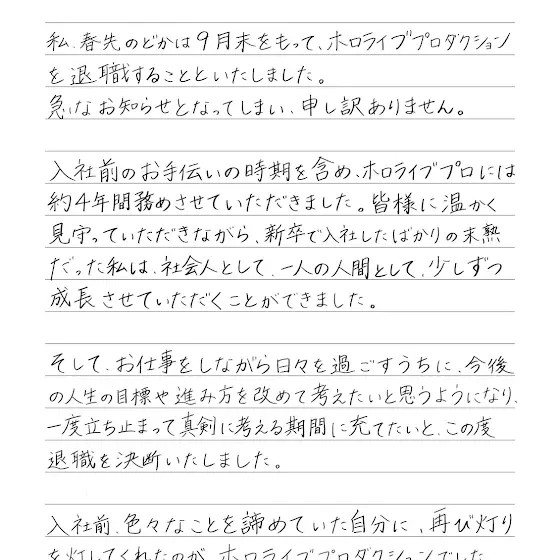 私、春先のどかは9月末をもって、ホロライブプロダクション
を退職することといたしました。
急なお知らせとなってしまい、申し訳ありません。
入社前のお手伝いの時期を含め、ホロライブプロには
約4年間務めさせていただきました。皆様に温かく
見守っていただきながら、新卒で入社したばかりの未熟
だった私は、社会人として、一人の人間として、少しずつ
成長させていただくことができました。
そして、お仕事をしながら日々を過ごすうちに、今後
の人生の目標や進み方を改めて考えたいと思うようになり、
一度立ち止まって真剣に考える期間に充てたいと、この度
退職を決断いたしました。
入社前、色々なことを諦めていた自分に、再び灯り
を灯してくれたのが、ホロライブプロダクションでした